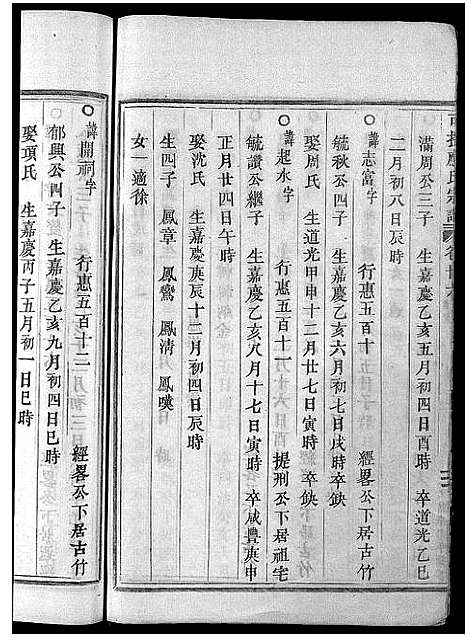 可投應氏宗譜 卷廿六
滿周公三子 生嘉慶乙亥五月初四日酉時 卒道光乙巳
二月初八日辰時
諱志富字 行惠五百十 經畧公下居古竹
毓秋公四子 生嘉慶乙亥六月初七日戌時卒缺
娶周氏 生道光甲申十二月廿七日寅時 卒缺
諱起水字 行惠五百十一 提刑公下居祖宅
毓讚公繼子 生嘉慶乙亥八月十七日寅時 卒咸豐庚申
正月廿四日午時
娶沈氏 生嘉慶庚辰十二月初四日辰時
生四子 鳳章 鳳鸞 鳳清 鳳嘆
女一適徐
諱開祠字 行惠五百十二 經畧公下居古竹
郁興公四子 生嘉慶乙亥九月初四日巳時
娶項氏 生嘉慶丙子五月初一日巳時